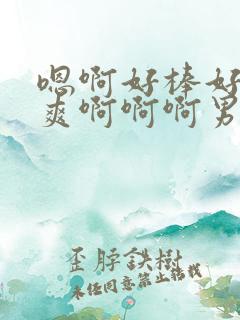 嗯啊好棒好
爽啊啊啊男
歪脖鉄樹
未经同意禁止转载